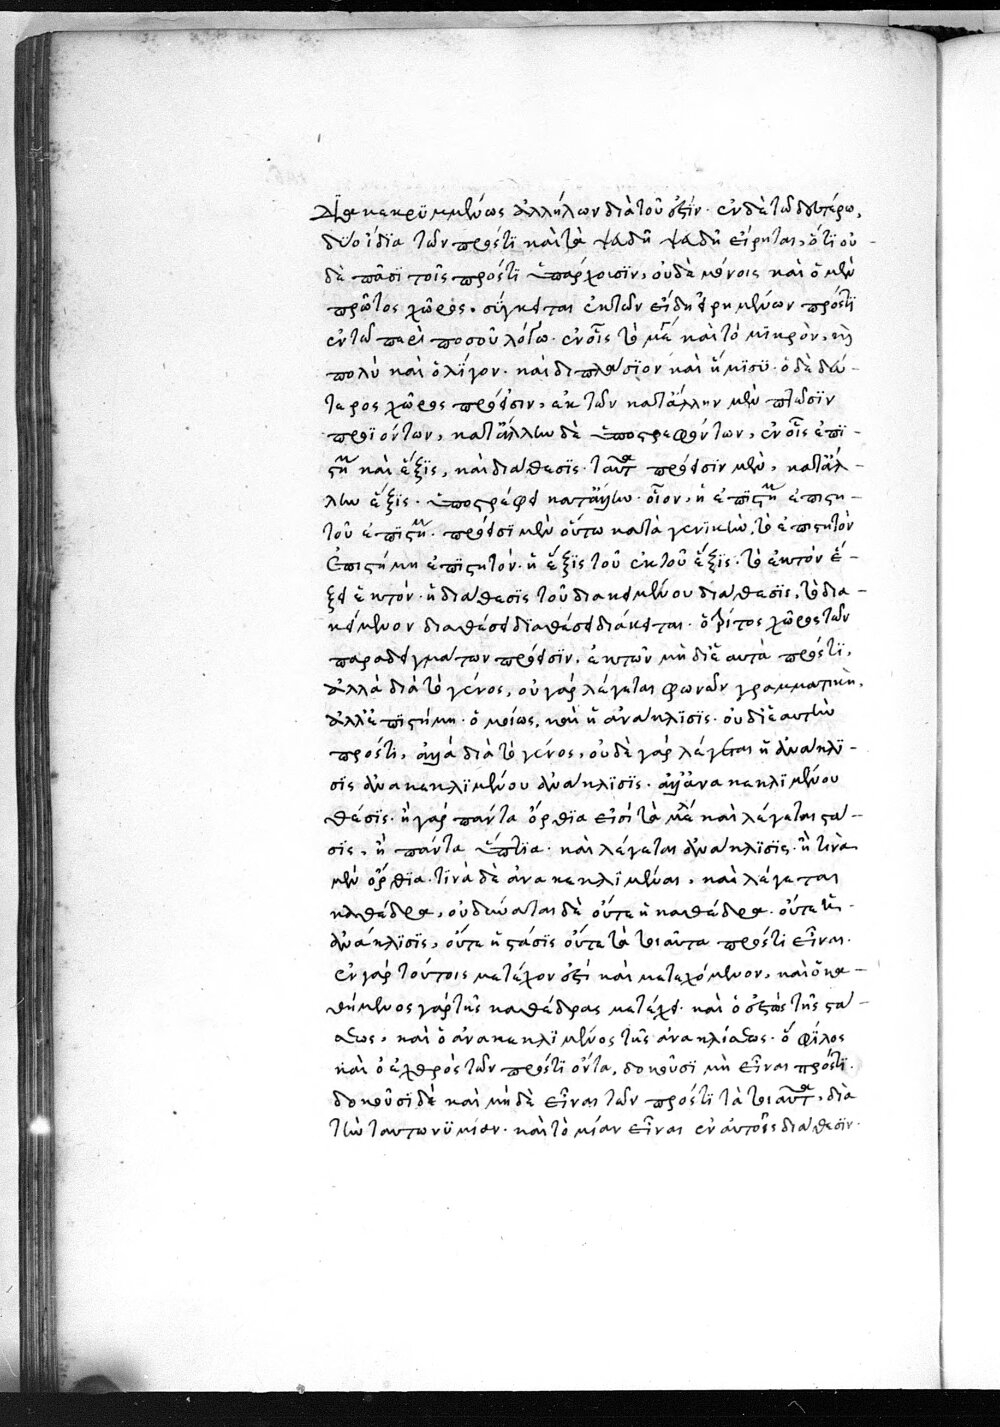 διακεκρϊμμένως ἀλλήλων διὰ τοῦ ἐξῆν· ἐν δὲ τῶ δευτέρω,
δύο ἴδϊα τῶν πρόστϊ καὶ τὰ ψευδῆ ψευδῆ εἴρηται, ὅτϊ οὐ-
δὲ πᾶσϊ τοῖς πρόστϊ ὑπάρχουσϊν, οὐδὲ μόνοις καὶ ὁ μὲν
πρῶτος χῶρος, σύγκειται ἐκ τῶν εἴδη εἰρημένων πρόστϊ
ἐν τῶ περὶ ποσοῦ λόγω· ἐν οἷς τὸ μέγα καὶ τὸ μϊκρὸν,
πολὺ καὶ ὀλίγον· καὶ διπλάσϊον καὶ ἥμϊσϋ· ὁ δὲ δεύ-
τερος χῶρος πρόεισιν, ἐκ τῶν κατάλλην μὲν πτῶσϊν
προϊόντων, κατάλλην δὲ ὑποστρεφόντων, ἐν οἷς ἐπϊ-
στήμη καὶ ἕξϊς, καὶ διάθεσϊς· ταῦτα πρόεισϊν μὲν, κατάλ-
λην ἕξϊς· ὑποστρέφει κατάλλην· οἷον, ἡ ἐπϊστήμη ἐπιστη-
τοῦ ἐπϊστήμη· πρόεισϊ μὲν οὕτω κατὰ γενϊκὴν, τὸ ἐπιστητὸν
ἐπιστήμη ἐπϊστητόν· ἡ ἕξϊς τοῦ ἑκτοῦ ἕξϊς· τὸ ἑκτὸν ἕ-
ξει ἑκτόν· ἡ διάθεσϊς τοῦ διακειμένου διάθεσϊς, τὸ δια-
κείμενον διαθέσει δϊαθέσει διάκειται· ὁ τρίτος χῶρος τῶν
παραδειγμάτων πρόεισϊν, ἐκ τῶν μὴ δι' ἑαυτὰ πρόστϊ,
ἀλλὰ διὰ τὸ γένος, οὐ γὰρ λέγεται φωνῶν γραμματικὴ,
ἀλλ' ἐπϊστήμη· ὁμοίως, καὶ ἡ ἀνάκλϊσϊς· οὐ δι' ἑαυτὴν
πρόστι, ἀλλὰ διὰ τὸ γένος, οὐδὲ γὰρ λέγεται ἡ ἀνάκλϊ-
σϊς ἀνακεκλϊμένου ἀνάκλϊσϊς· ἀλλ' ἀνακεκλϊμένου
θέσϊς· ἢ γὰρ πάντα ὄρθϊα εἰσὶ τὰ μέλη καὶ λέγεται στά-
σϊς, ἢ πάντα ὕπτϊα· καὶ λέγεται ἀνάκλϊσϊς· ἢ τϊνὰ
μὲν ὄρθϊα· τϊνὰ δὲ ἀνακεκλϊμένα, καὶ λέγεται
καθέδρα, οὐ δύναται δὲ οὔτε ἡ καθέδρα· οὔτε ἡ
ἀνάκλϊσϊς, οὔτε ἡ στάσϊς οὔτε τὰ τοιαῦτα πρόστϊ εἶναι·
ἐν γὰρ τούτοις μετέχον ἐστὶ καὶ μετεχόμενον, καὶ ὁ κα-
θήμενος γὰρ τῆς καθέδρας μετέχει· καὶ ὁ ἑστὼς τῆς στά-
σεως, καὶ ὁ ἀνακεκλϊμένος τῆς ἀνακλίσεως· ὁ φίλος
καὶ ὁ ἐχθρὸς τῶν πρόστϊ ὄντα, δοκοῦσϊ μὴ εἶναι πρόστϊ·
δοκοῦσϊ δὲ καὶ μηδὲ εἶναι τῶν πρόστϊ τὰ τοιαῦτα, διὰ
τὴν ταυτωνϋμίαν· καὶ τὸ μίαν εἶναι ἐν αὐτοῖς διάθεσϊν·